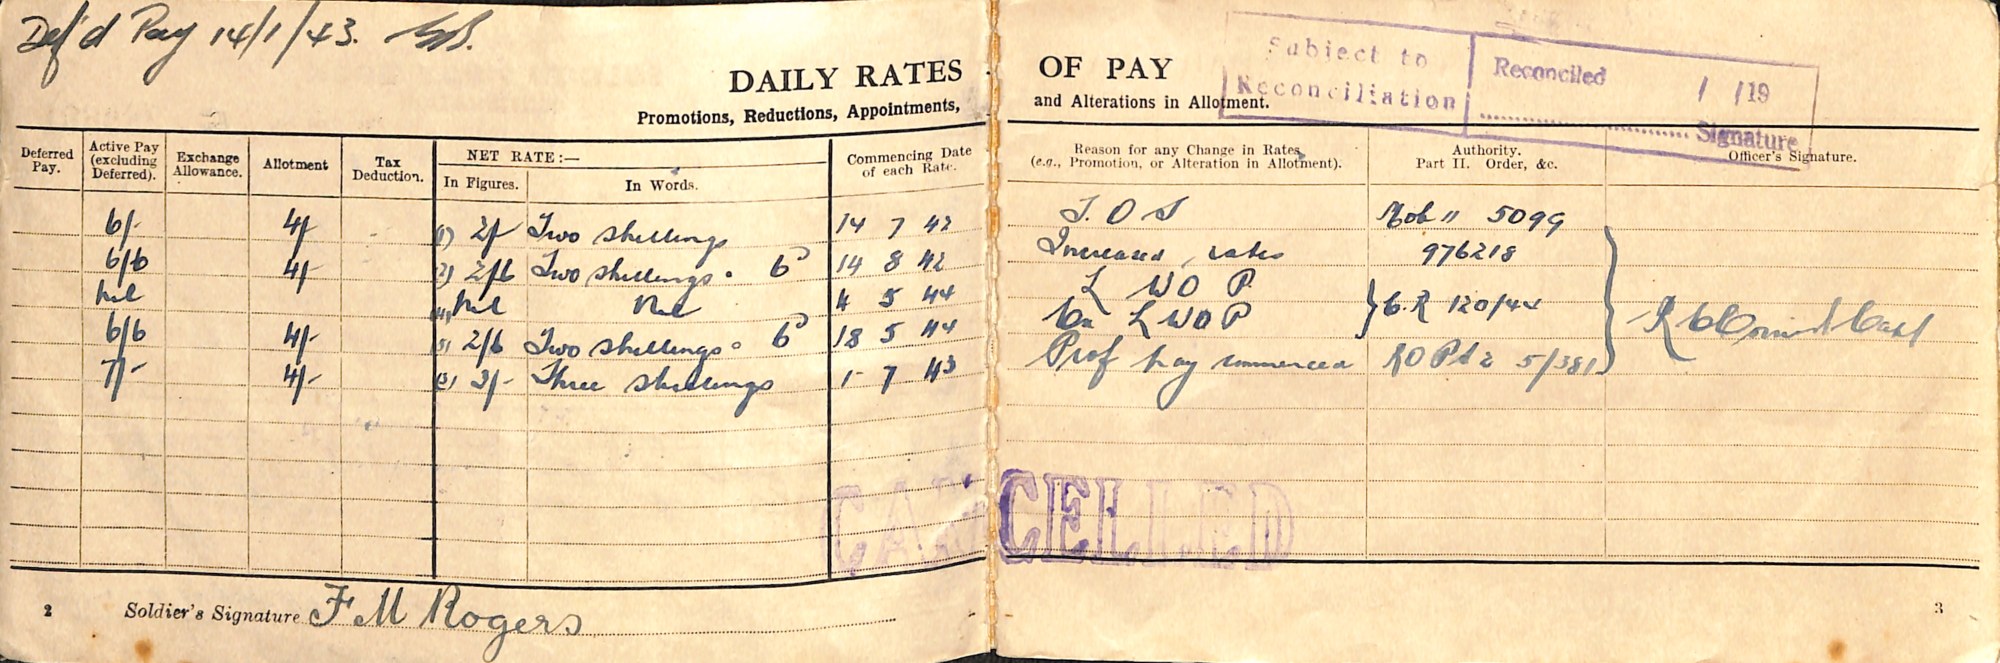 Def'd Pay 14/1/43.
DAILY RATES OF PAY
Promotions, Reductions, Appointments, and Alterations in Allotment.
Subject to Reconciliation
Reconciled 1 /19
Signature
Deferred Pay. Active Pay (excluding Deferred). Exchange Allowance. Allotment Tax Deduction. NET RATE:— In Figures. In Words. Commencing Date of each Rate. Reason for any Change in Rates (e.g., Promotion, or Alteration in Allotment). Authority. Part II. Order, &c. Officer's Signature.
6/- 4/- (1) 2/- Two shillings 14 7 42 T.O.S Mob 11 5099
6/6 4/- (2) 2/6 Two shillings 6D 14 8 42 Increased rates 976218
Nil (4) Nil Nil 4 5 44 L W O P
6/6 4/- (5) 2/6 Two shillings 6D 18 5 44 L W O P } C.R 120/44
7/- 4/- (3) 3/- Three shillings 1 7 43 Prof pay commenced RO Pt 2 5/381
CANCELLED
2 Soldier's Signature F M Rogers
3